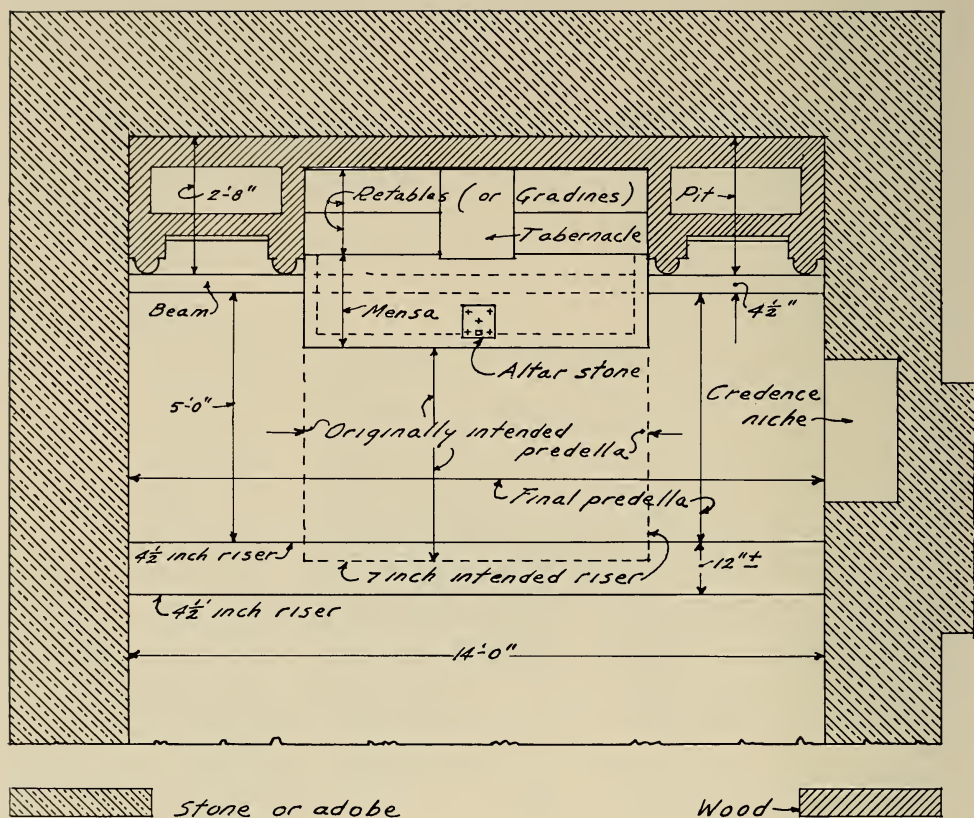 2'-8"
Retables (or Gradines)
Pit
Tabernacle
Beam
Mensa
4½"
Altar stone
Credence
niche
5'-0"
Originally intended
predella
Final predella
4½ inch riser
7 inch intended riser
12" ±
4½' inch riser
14'-0"
Stone or adobe
Wood